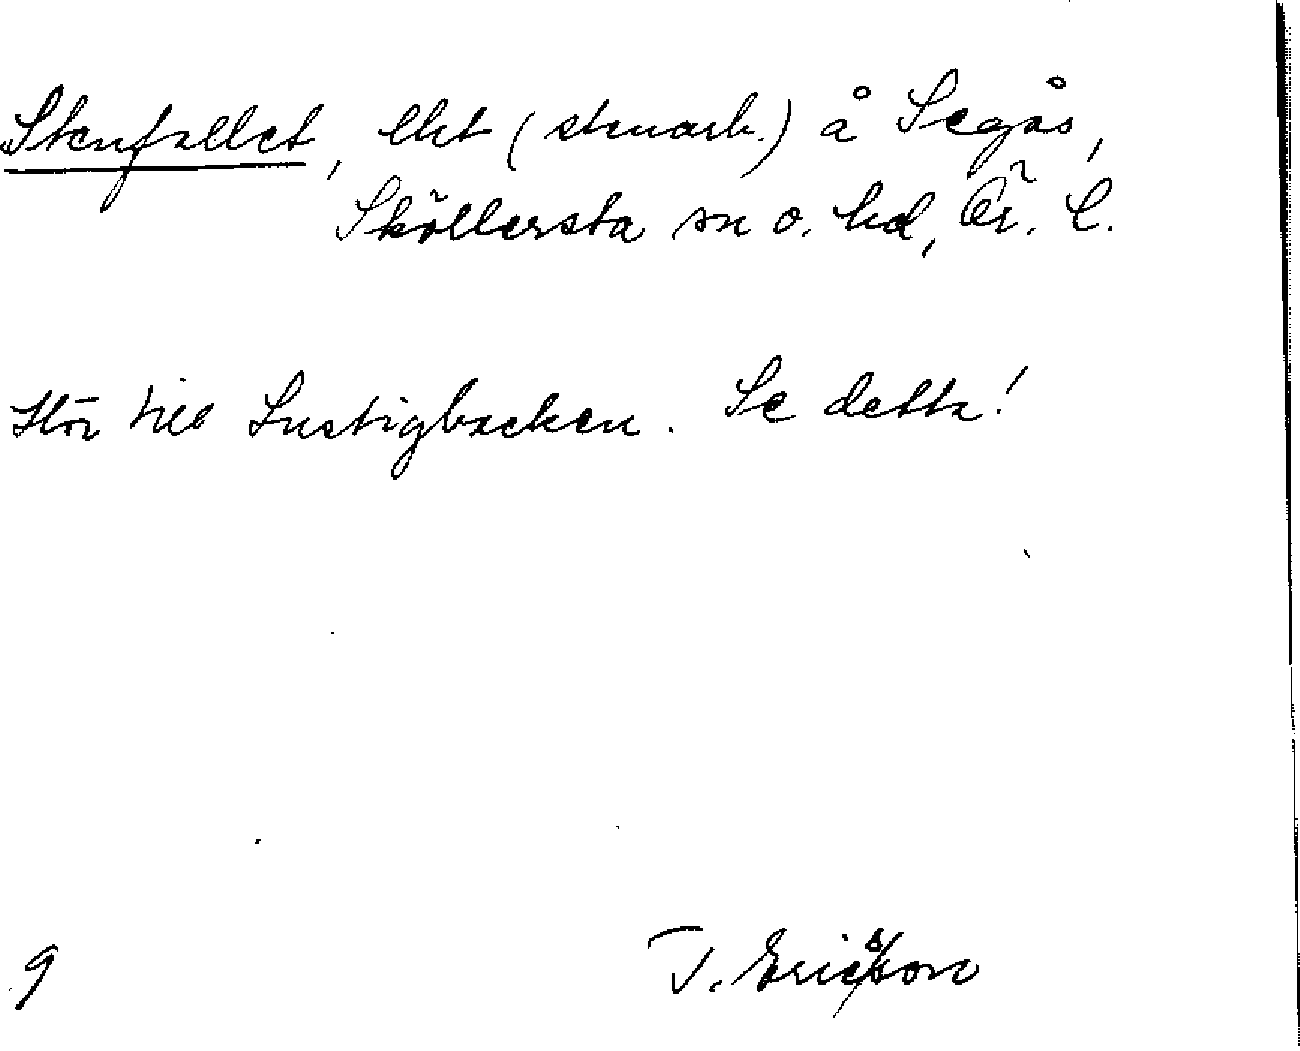 Stenfallet, lht (stenarb.) å Segås,
Sköllersta sn o. hd, Ör. l.
Hör till Lustigbacken. Se detta!
9 T. Ericsson